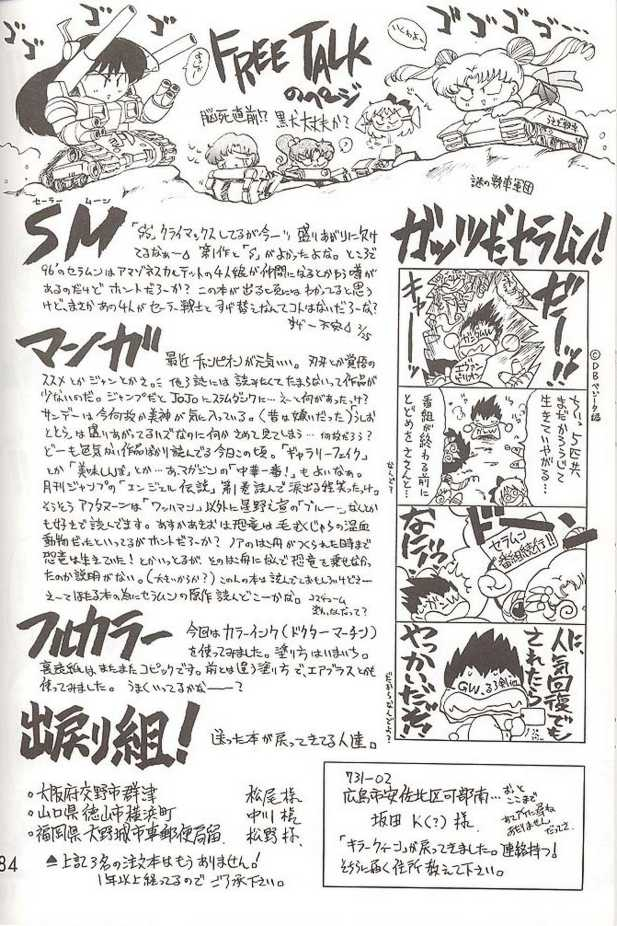 ゴゴゴ
FREE TALK
のページ
ゴゴゴゴ…
いくわよっ
脳死直前!? 黒犬大丈夫か?
謎の戦車軍団
セーラー ムーン
SM
「SS」クライマックスしてるが今一ツ盛りあがりに欠け
てるなぁー 第1作と「S」がよかったよな。ところで
96'のセラムンはアマゾネスカルテットの4人娘が仲間になるとかもう噂が
あるのだけどホントだろーか? この本が出る頃にはわかってると思う
けど、まさかあの4人がセーラー戦士とすげ替えなんてコトはないだろーな?
すげー不安 2/25
マンガ
最近チャンピオンが元気いい。刃牙とか覚悟の
ススメとかジャンとかと。… 他3誌には読みたくてたまらないって作品が
少ないのだ。ジャンプだとJoJoにスラムダンクに…え〜と何があったっけ?
サンデーは今何故か美神が気に入っている。(昔は嫌いだった)うしお
ととらは盛りあがってるハズなのに何かさめて見てしまう… 何故だろう?
どーも色気がない作品ばかり読んでる今日この頃。「ギャラリーフェイク」
とか「美味しんぼ」とか…あ、マガジンの「中華一番!」もよいなぁ。
月刊ジャンプの「エンジェル伝説」第1巻読んで涙出る程笑ったっけ。
そうそうアフタヌーンは「ワッハマン」以外に星野之宣の「ブルーワールド」なんか
も好きで読んでです。あすかあきおは恐竜は毛むくじゃらの温血
動物だったといってるがホントだろーか? ノアのはこ舟がつくられた時まで
恐竜は生きていた!とかいってるが、そのはこ舟になんで恐竜を乗せなか
ったのか説明がない。(大きいからか?)
え〜てほたる本の為にセラムンの原作読んどこーかな。
フルカラー
今回はカラーインク(ドクターマーチン)
を使ってみました。塗り方はいまいち。
裏表紙はまたまたコピックです。前とは違う塗り方で、エアブラスとかも
使ってみました。うまくいってるかな———?
出戻り組!
送った本が戻ってきてる人達。
○大阪府交野市群津 松尾様
○山口県徳山市横浜町 中川様
○福岡県大野城市東郵便局留 松野様
▲上記3名の注文本はもうありません!
1年以上経ってるのでご了承下さい。
84
ガッツだセラムン!
©DBベジータ編
だーッ!!
キャー
ガンダムW
エヴァンゲリオン
ちいっ、5匹共
まだかろうじて
生きていやがる…
番組が終わる前に
とどめをささんと…
ドーン
セラムン
番組続行!!
なにィッ!
ガンダムW
人に人気回復でも
されたら
やっかいだぜ!
GW、るろ剣他
だからなんでよ?
731-02
広島市安佐北区可部南… おっと
ここまで
坂田K(?)様
「キラークィーン」が戻ってきました。連絡待つ!
そちらに届く住所教えて下さい。